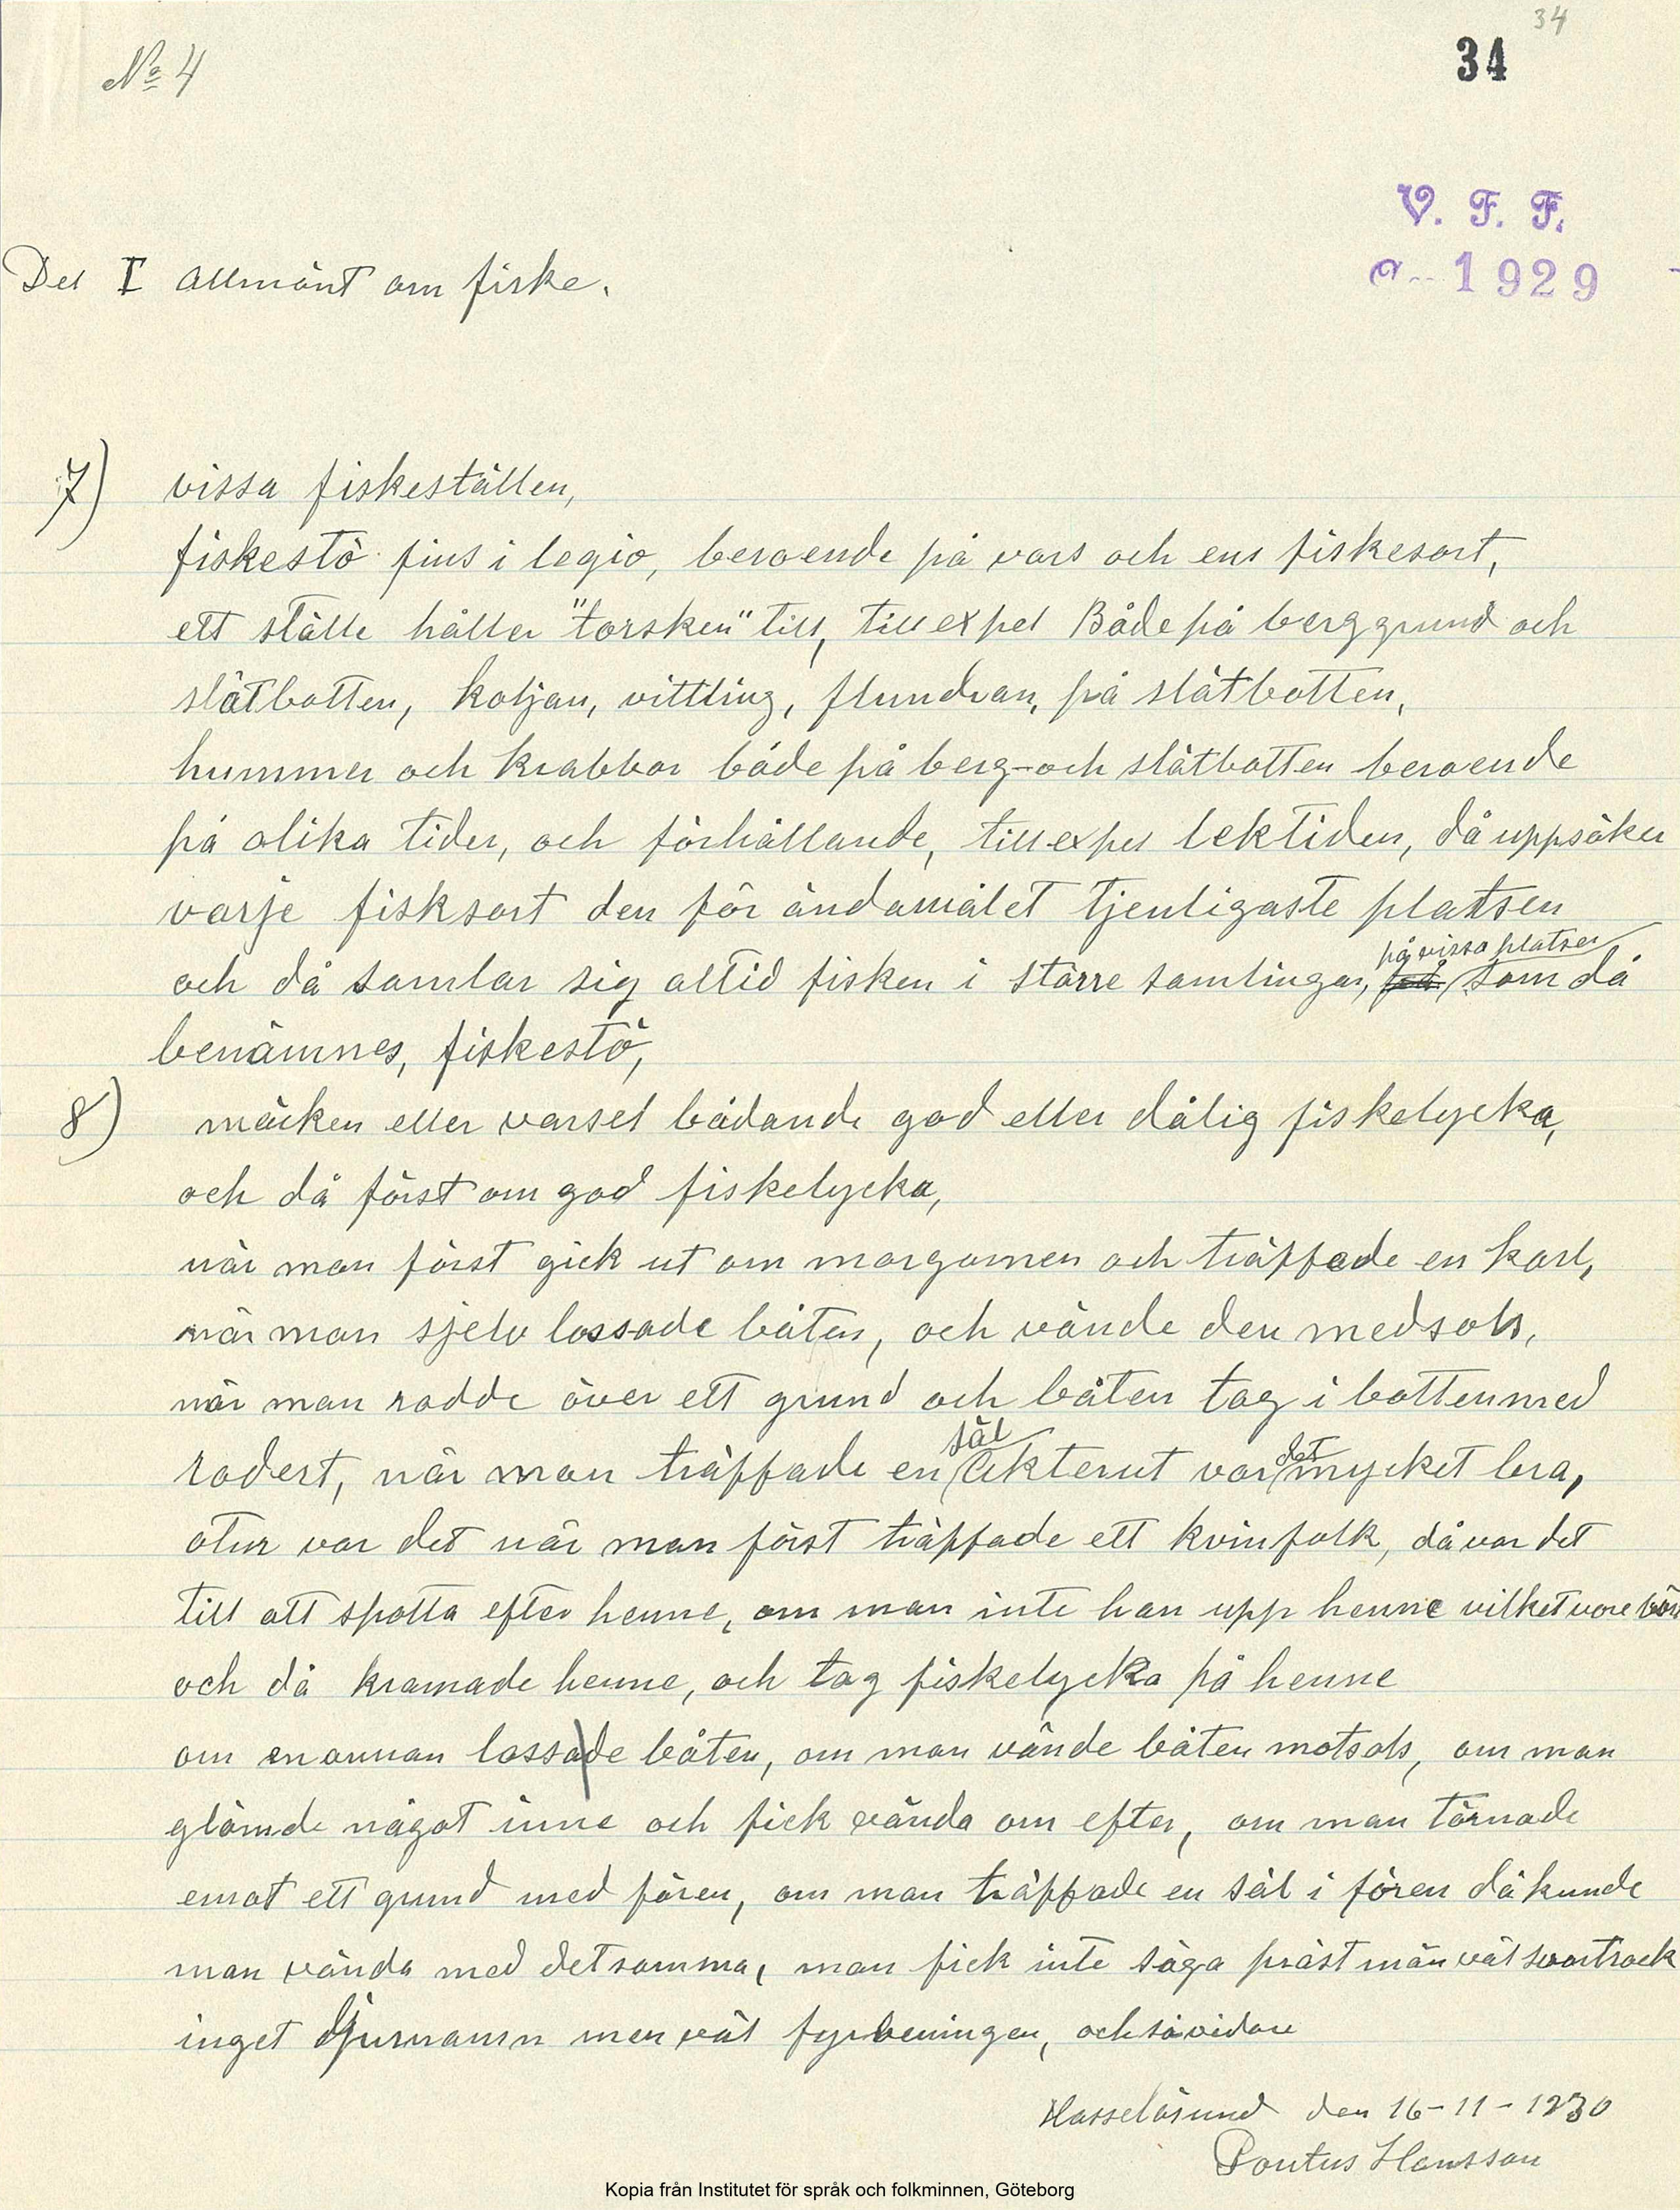 34
No 4
34
V. F. F.
1929
Del I Allmänt om fiske.
7) vissa fiskeställen,
fiskestö fins i legio, beroende på vars och ens fiskesort,
ett ställe håller "torsken" till, till expel Både på berggrund och
slätbotten, koljan, vittling, flundran, på slätbotten,
hummer och krabbor både på berg- och slätbotten beroende
på olika tider, och förhållande, till expel lektiden, då uppsöker
varje fisksort den för ändamålet tjenligaste platsen
och då samlar sig alltid fisken i större samlingar, på vissa platser som då
benämnes, fiskestö,
8) märken eller varsel bådande god eller dålig fiskelycka,
och då först om god fiskelycka,
när man först gick ut om morgonen och träffade en karl,
när man sjelv lossade båten, och vände den medsols,
när man rodde över ett grund och båten tog i botten med
rodert, när man träffade en säl akterut var det mycket bra,
otur var det när man först träffade ett kvinfolk, då var det
till att spotta efter henne, om man inte han upp henne vilket vore
och då kramade henne, och tog fiskelycka på henne
om en annan lossade båten, om man vände båten motsols, om man
glömde något inne och fick vända om efter, om man törnade
emot ett grund med fören, om man träffade en säl i fören då kunde
man vända med detsamma, man fick inte säga präst män väl svartrock
inget djurnamn men väl fyrbeningen, och så vidare
Hasselösund den 16-11-1930
Pontus Hansson
Kopia från Institutet för språk och folkminnen, Göteborg